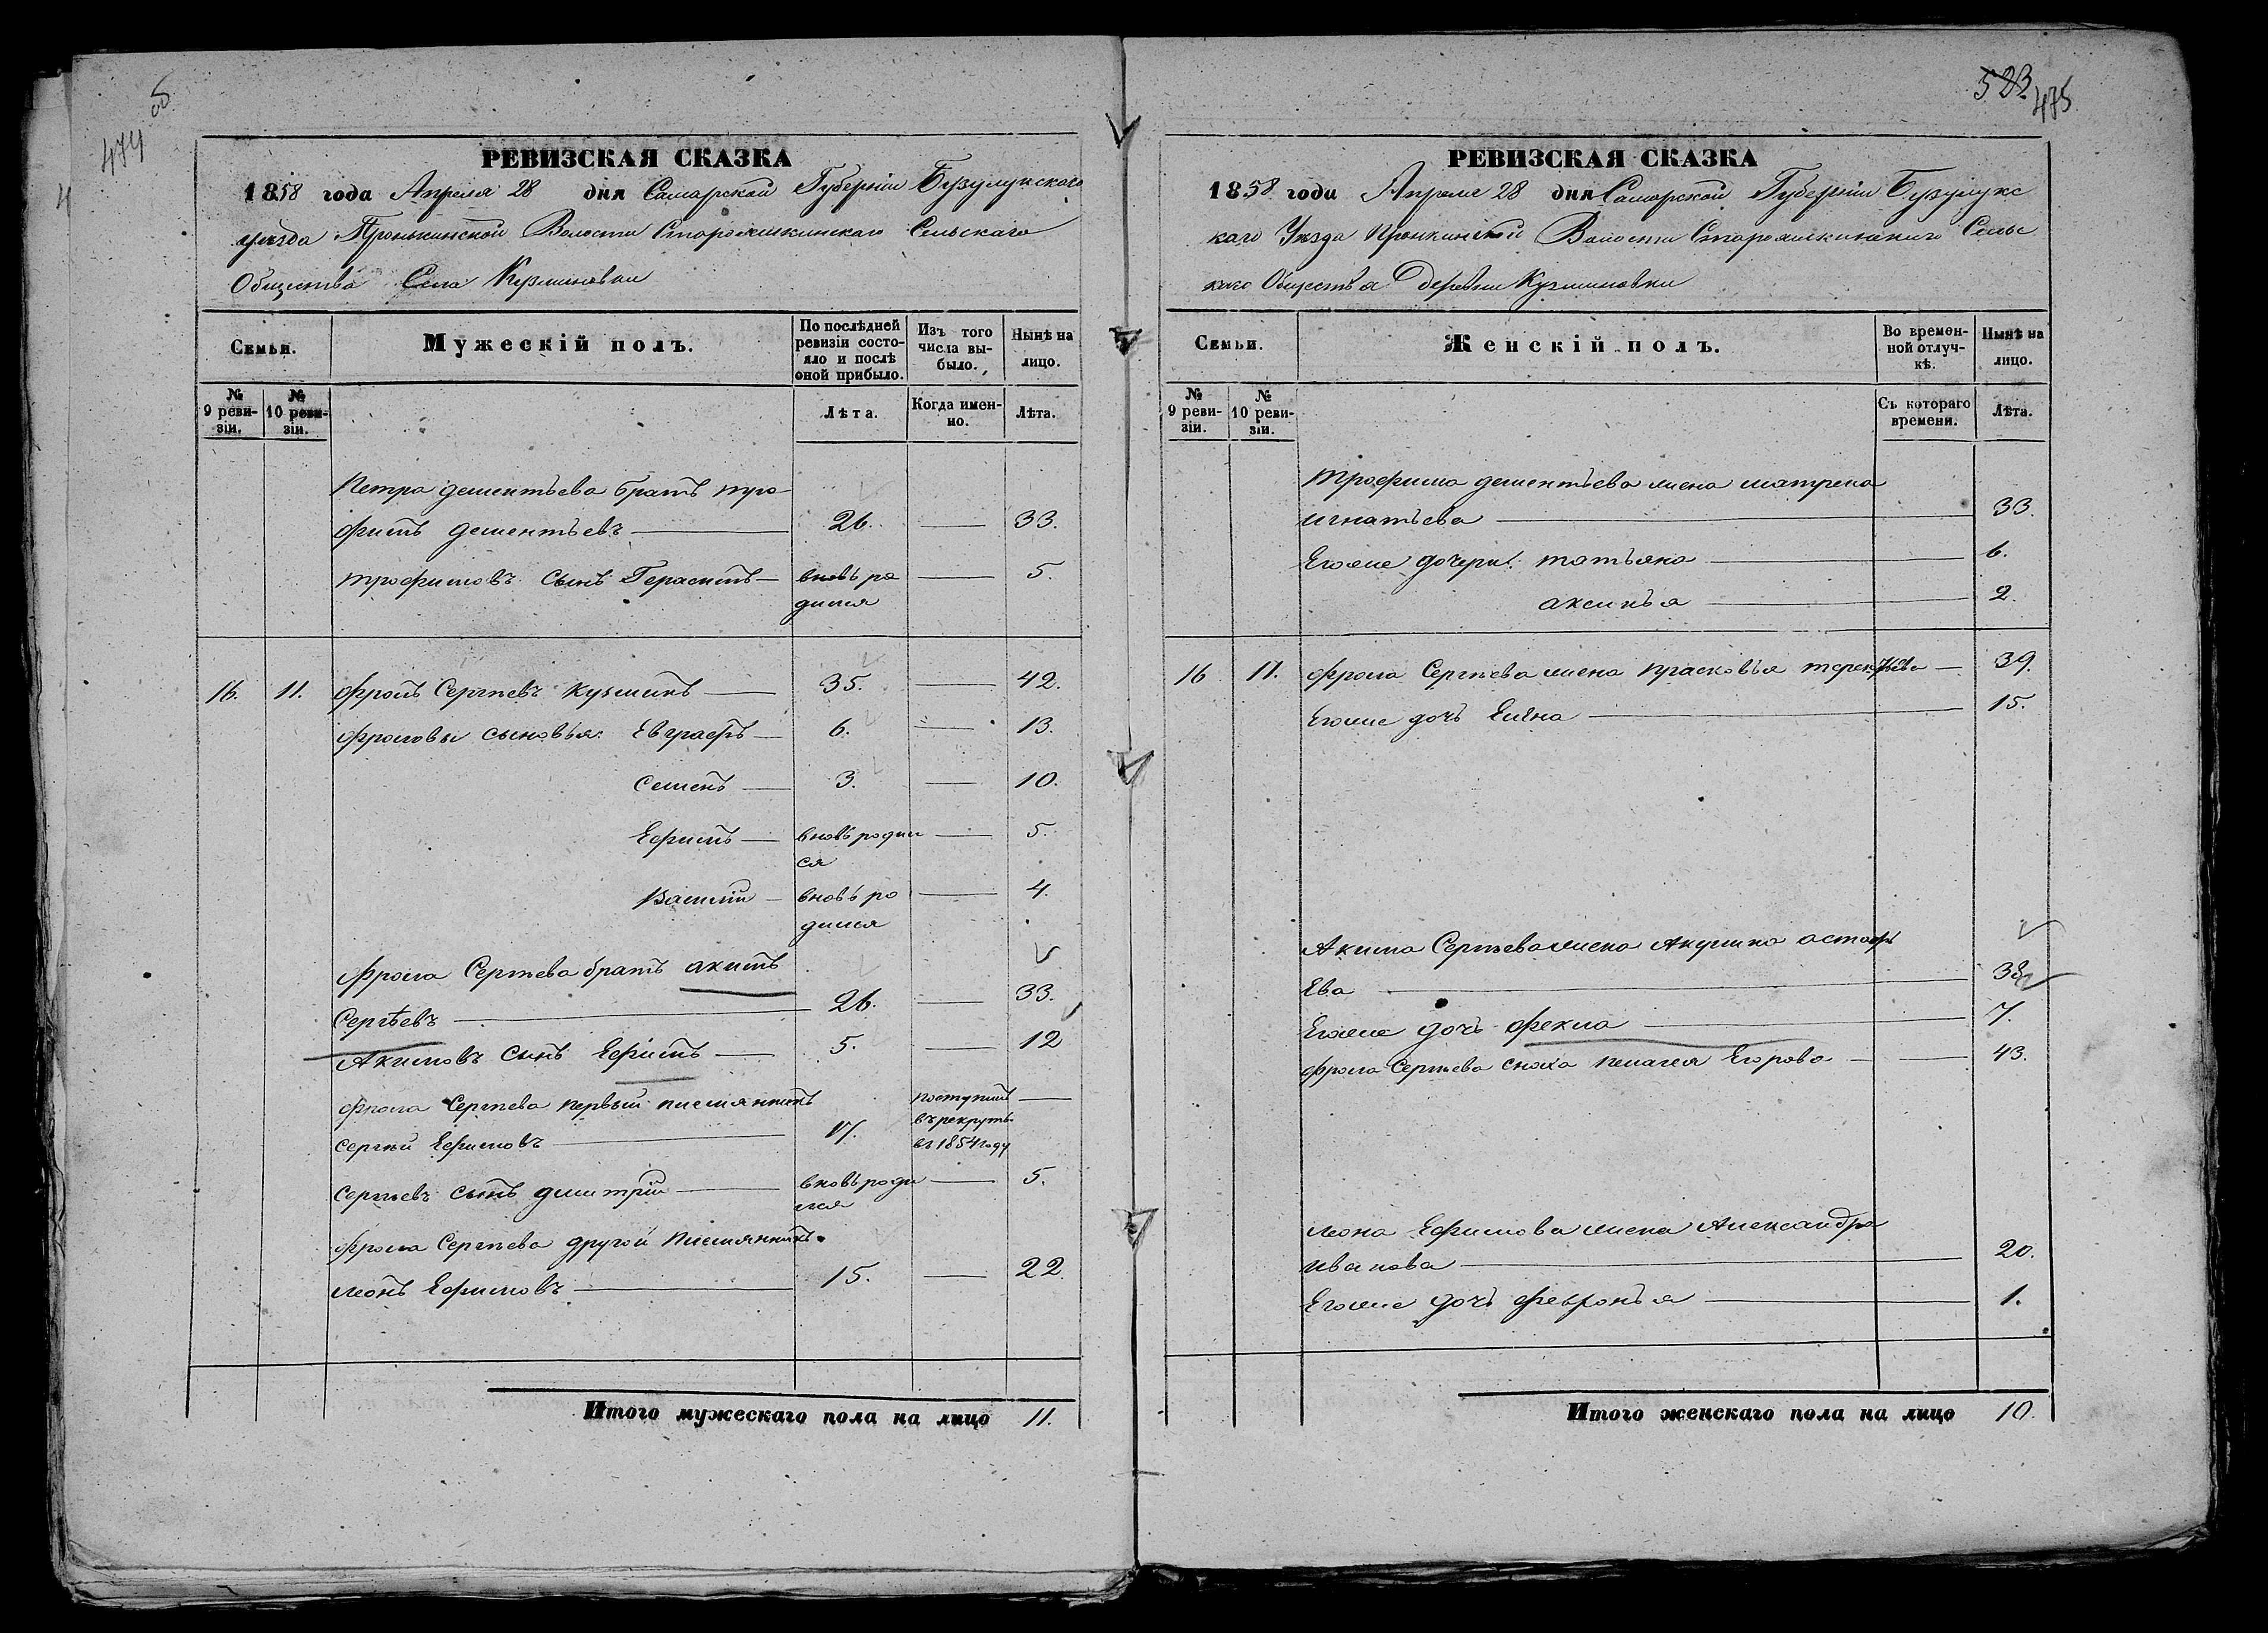 474 об
РЕВИЗСКАЯ СКАЗКА
1858 года Апреля 28 дня Самарской Губерніи Бузулукскаго
уезда Пронькинской Волости Сельскаго
Общества Села Кузминовки
Семьи.
Мужескій полъ.
По послѣдней ревизіи состояло и послѣ оной прибыло.
Изъ того числа выбыло.
Нынѣ на лицо.
№ 9 ревизіи.
№ 10 ревизіи.
Лѣта.
Когда именно.
Лѣта.
Петра дементьева братъ тро
фимъ дементьевъ 26. 33.
трофимовъ сынъ Герасимъ вновь ро 5.
дился
16. 11. фролъ Сергѣевъ кузминъ 35. 42.
фроловы сыновья: Евграфъ 6. 13.
семенъ 3. 10.
Ефимъ вновь родил 5.
ся
Василій вновь ро 4.
дился
фрола Сергѣева братъ акимъ
Сергѣевъ 26. 33.
Акимовъ сынъ Ефимъ 5. 12
фрола Сергѣева первый племянникъ поступилъ
сергѣй Ефимовъ 17. въ рекруты
въ 1854 году
Сергѣевъ сынъ дмитрій вновь роди 5.
лся
фрола Сергѣева другой племянникъ
леонъ Ефимовъ 15. 22.
Итого мужескаго пола на лицо 11.
523
475
РЕВИЗСКАЯ СКАЗКА
1858 года Апреля 28 дня Самарской Губерніи Бузулукс
каго Уѣзда Пронкинской Волости Сельс
каго Общества Деревни Кузминовки
Семьи.
Женскій полъ.
Во временной отлучкѣ.
Нынѣ на лицо.
№ 9 ревизіи.
№ 10 ревизіи.
Съ котораго времени.
Лѣта.
трофима дементьева жена матрена
игнатьева 33.
Егоже дочери: татьяна 6.
аксинья 2.
16 11. фрола Сергѣева жена прасковья терентьева 39.
Егоже дочь Елена 15.
Акима Сергѣева жена Акулина астафь
Ева
Егоже дочь фекла 7.
фрола Сергѣева сноха пелагея Егорова 43.
леона Ефимова жена Александра
иванова 20.
Егоже дочь февронья 1.
Итого женскаго пола на лицо 10.